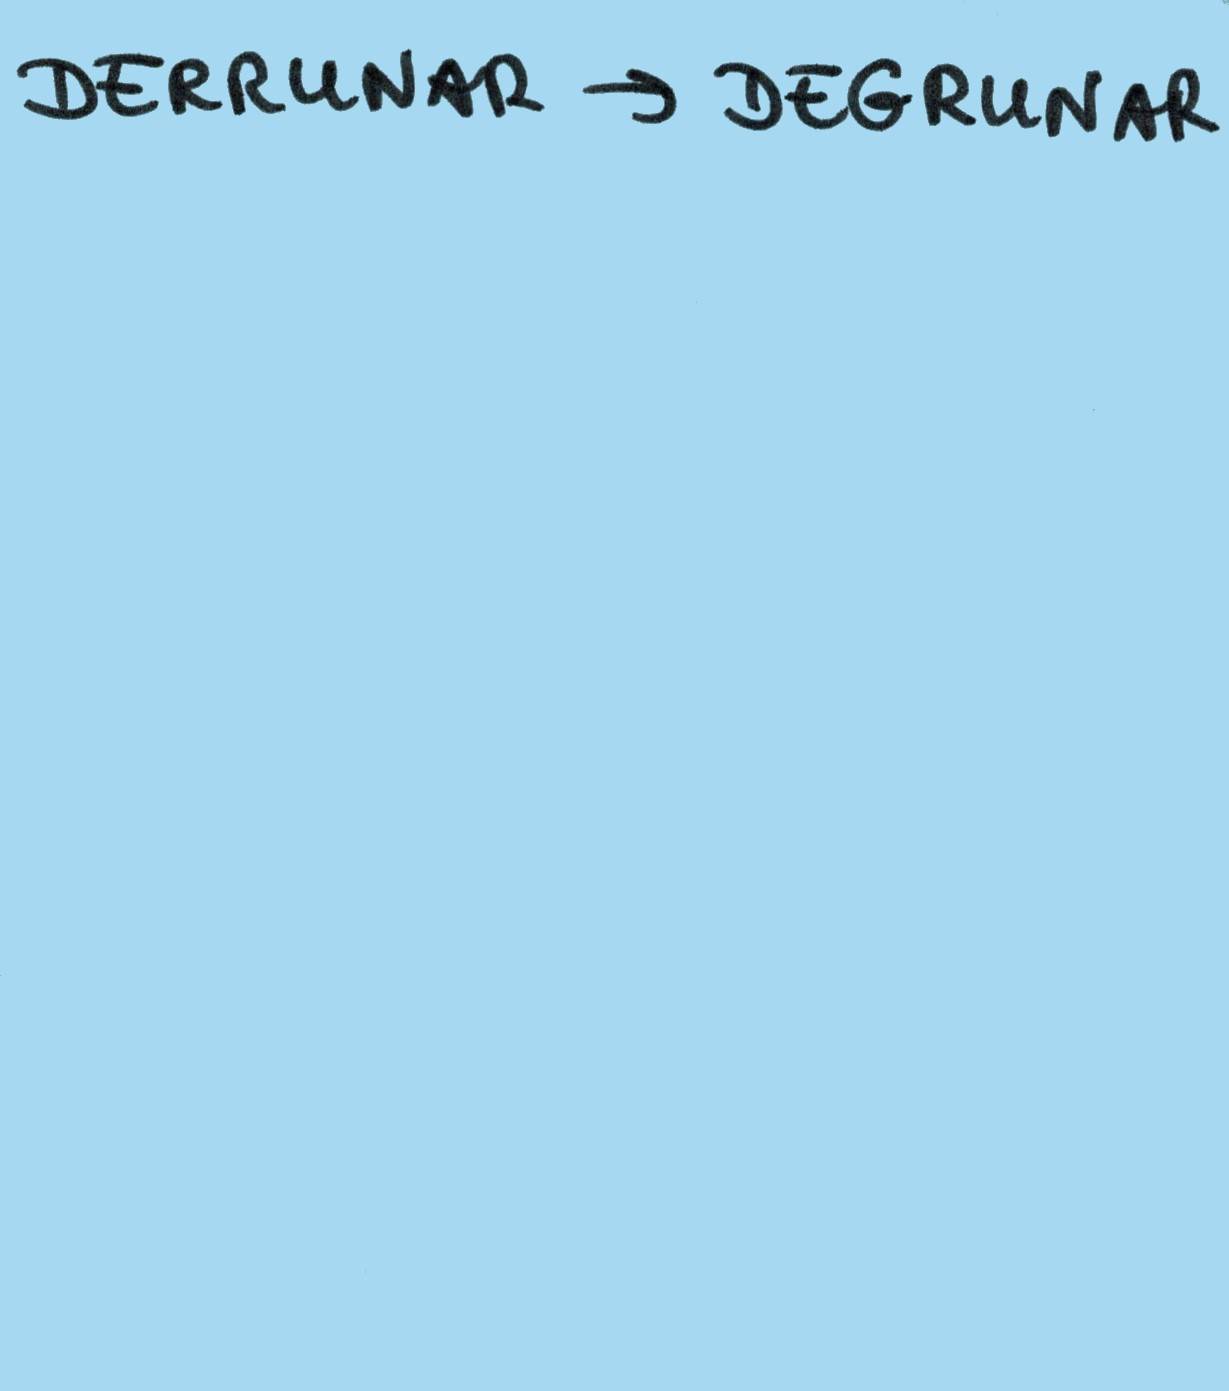 DERRUNAR → DEGRUNAR